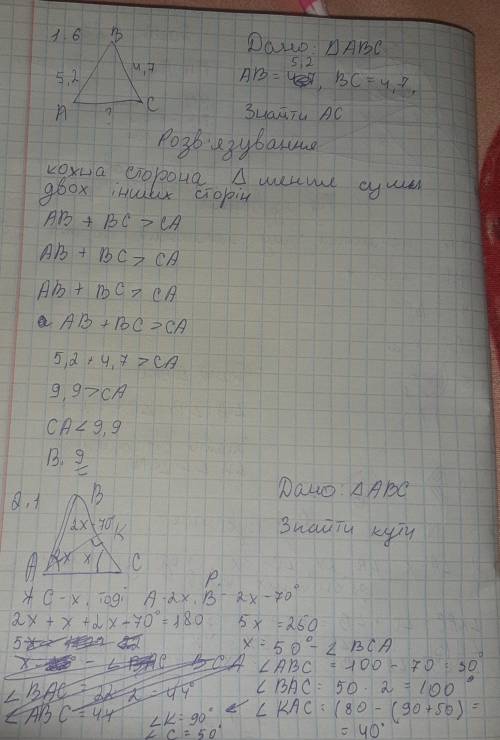 1.6
B
5,2
4,7
A
C
?
Дано: ΔABC
5,2
AB = , BC = 4,7,
Знайти AC
Розв'язування
кожна сторона Δ менше суми
двох інших сторін
AB + BC > CA
AB + BC > CA
AB + BC > CA
AB + BC > CA
5,2 + 4,7 > CA
9,9 > CA
CA < 9,9
В. 9
2.1
B
2x-70°
K
A
2x
x
C
Дано: ΔABC
Знайти кути
Р.
C - x, тоді A - 2x, B - 2x - 70°
2x + x + 2x - 70° = 180
5x = 250
x = 50° - ∠ BCA
∠ ABC = 100 - 70 = 30°
∠ BAC = 50 · 2 = 100°
∠ BAC = 22 · 2 = 44°
∠ ABC = 44
∠K = 90°
∠C = 50°
∠ KAC = 180 - (90+50) =
= 40°